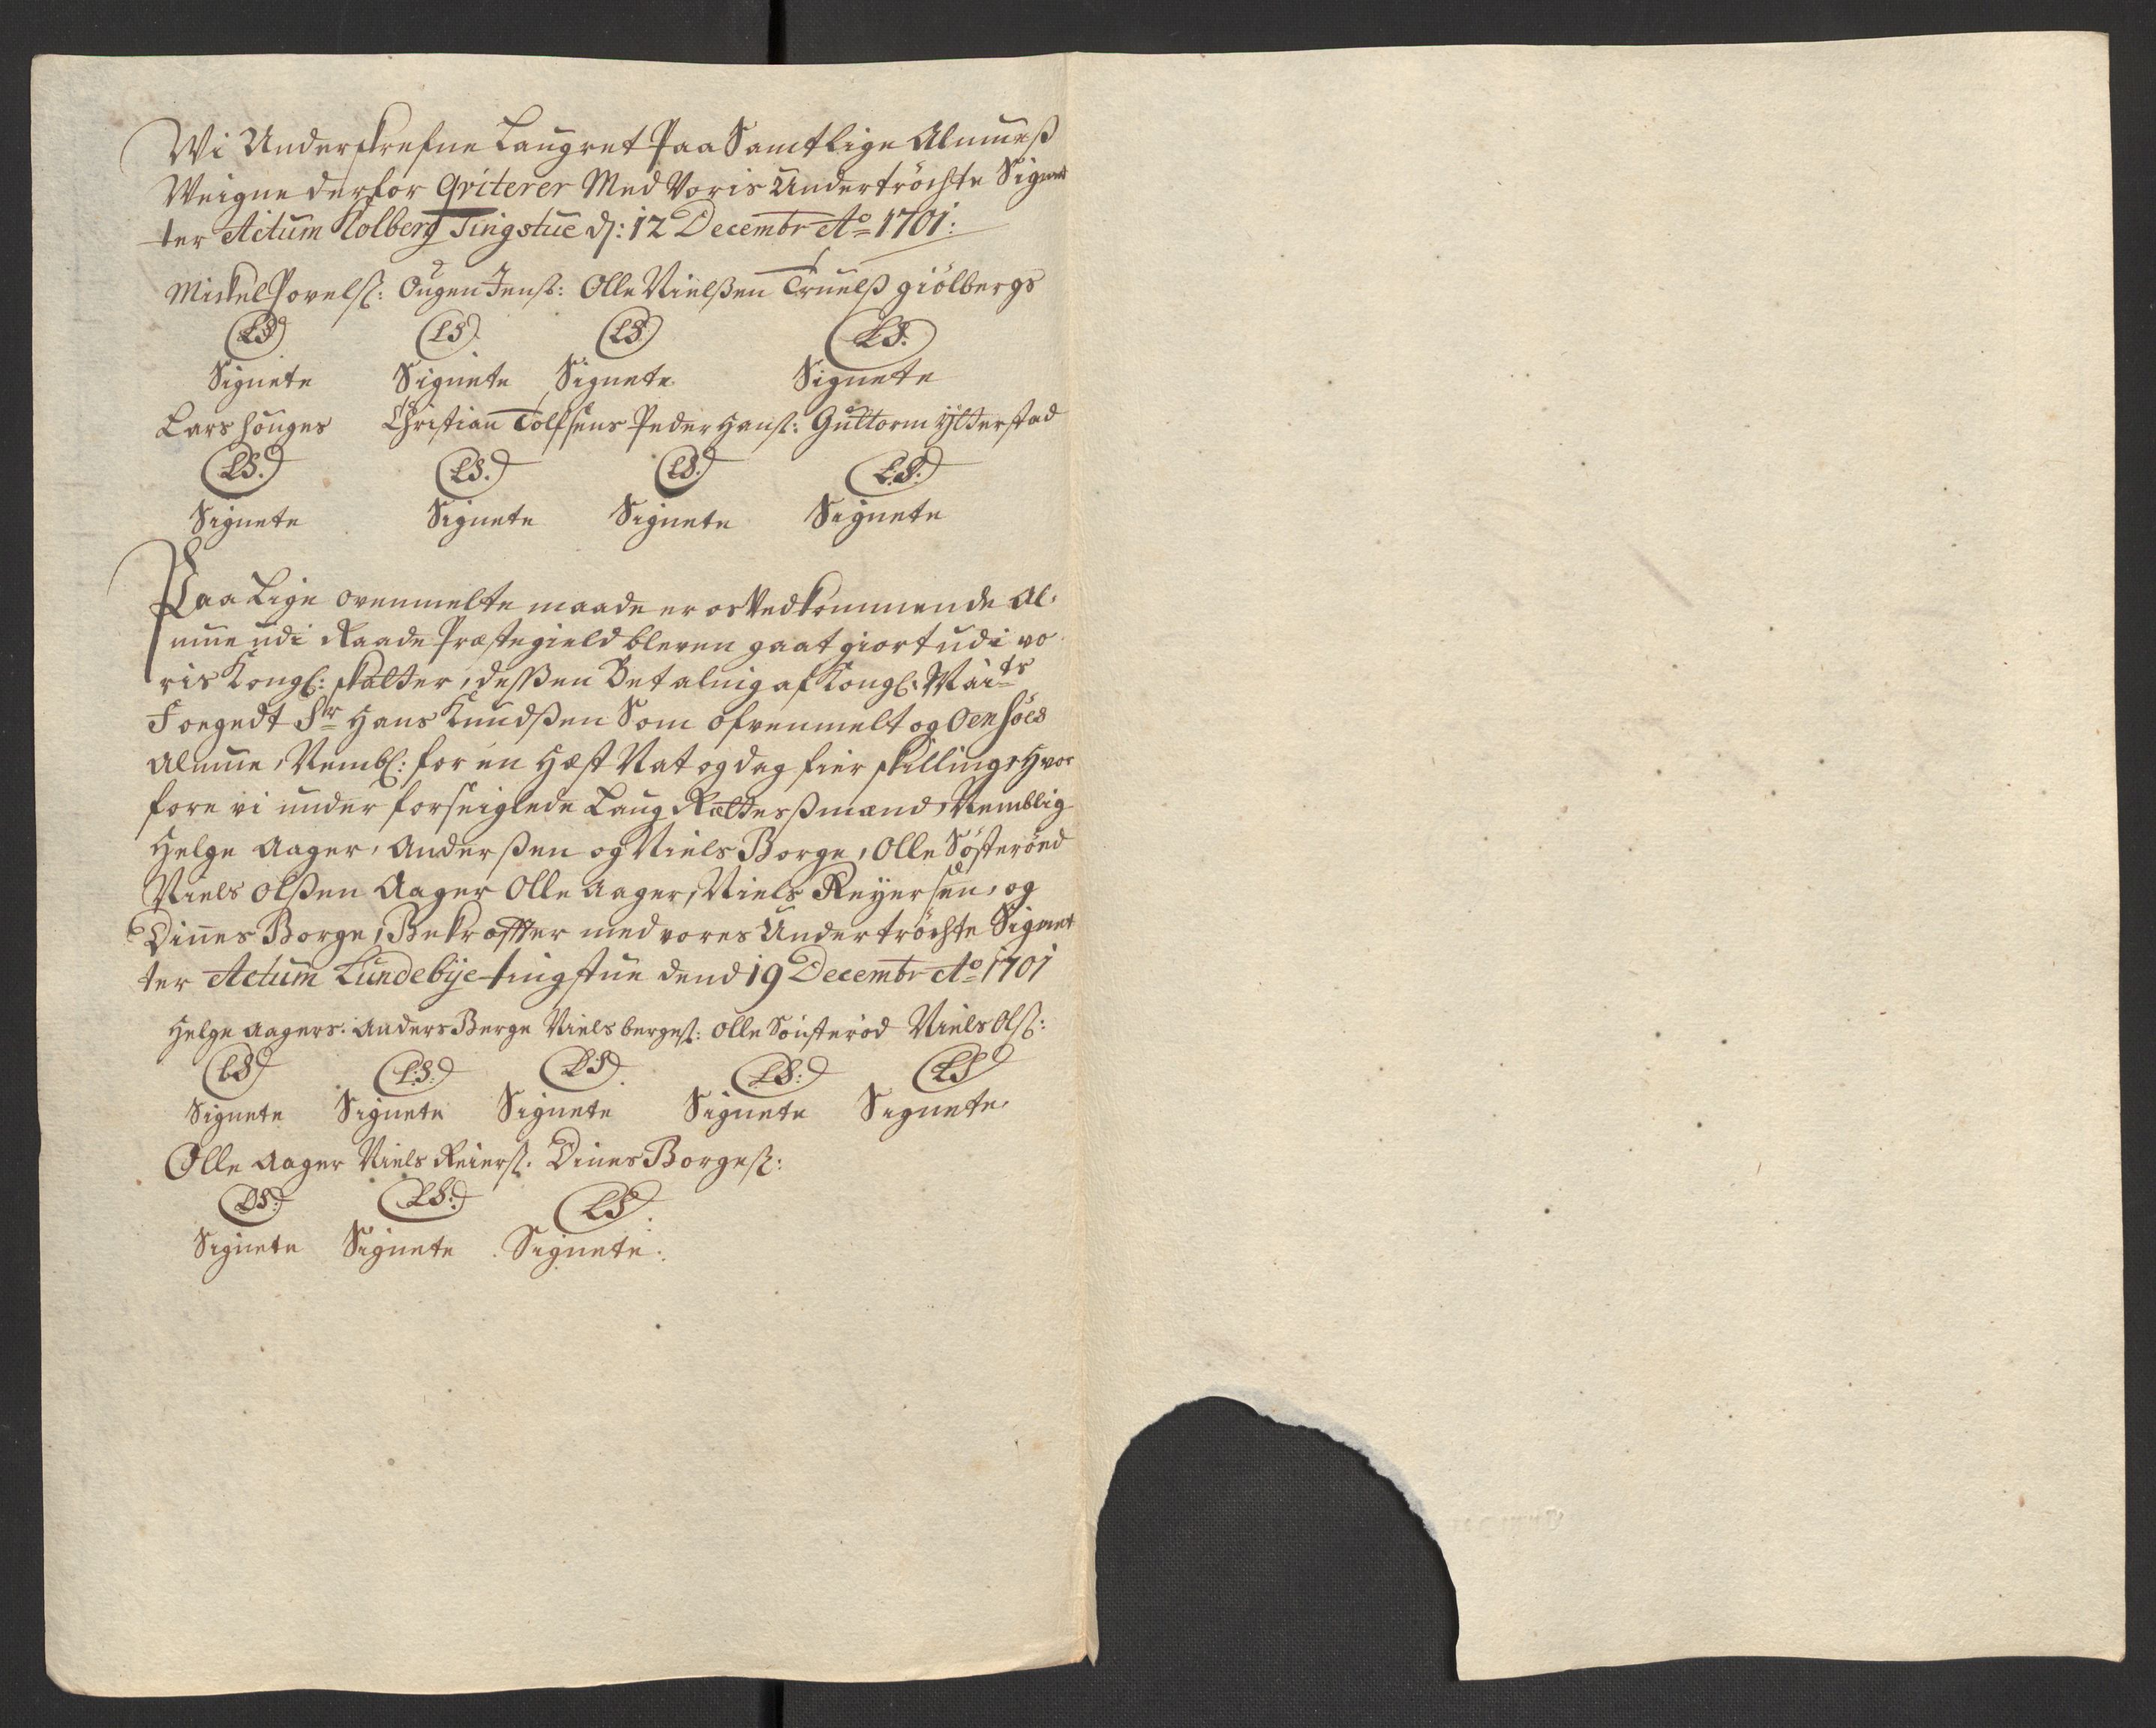 Wi Underskrefne Laugret Paa Samtlige Almueß
Weigne derfor qviterer Med Voris Undertröchte Signet
ter Actum Kolberg Tingstue d: 12 Decembr Ao 1701:
Mickel Povelß: Ougen Jenß: Olle Nielßen Truelß giölbergs
LS LS LS LS.
Signete Signete Signete Signete
Lars Houges Christian Tolfsens Peder Hanß: Guttorm Ylterstad
LS. LS. LS. L.S.
Signete Signete Signete Signete
Paa Lige ovenmelte maade er os Vedkommende Al,
mue udi Raade Præstegield bleven gaat giort udi vo
ris Kongl: skatter, deßen Betalnig af Kongl: Maits
Foegedt Sr Hans Knudßen Som ofvenmelt og Oensöes
Almue, Nembl: for en Hest Nat og dag fier skillinger Hvor
fore vi under forseiglede Laug Rætteßmænd, Nemblig
Helge Aager, Anderßen og Niels Borge, Olle Sösteröed
Niels Olßen Aager Olle Aager, Niels Reyersen, og
Dines Borge, Bekræffter med vores Undertröchte Signet
ter Actum Lundebye tingstue dend 19 Decembr Ao 1701
Helge Aagers. Anders Berge Niels bergeß: Olle Söisteröd Niels Olß:
LS L:S: LS LS: LS
Signete Signete Signete Signete Signete,
Olle Aager Niels Reierß. Dines Borgeß:
LS: LS: LS
Signete Signete Signete: